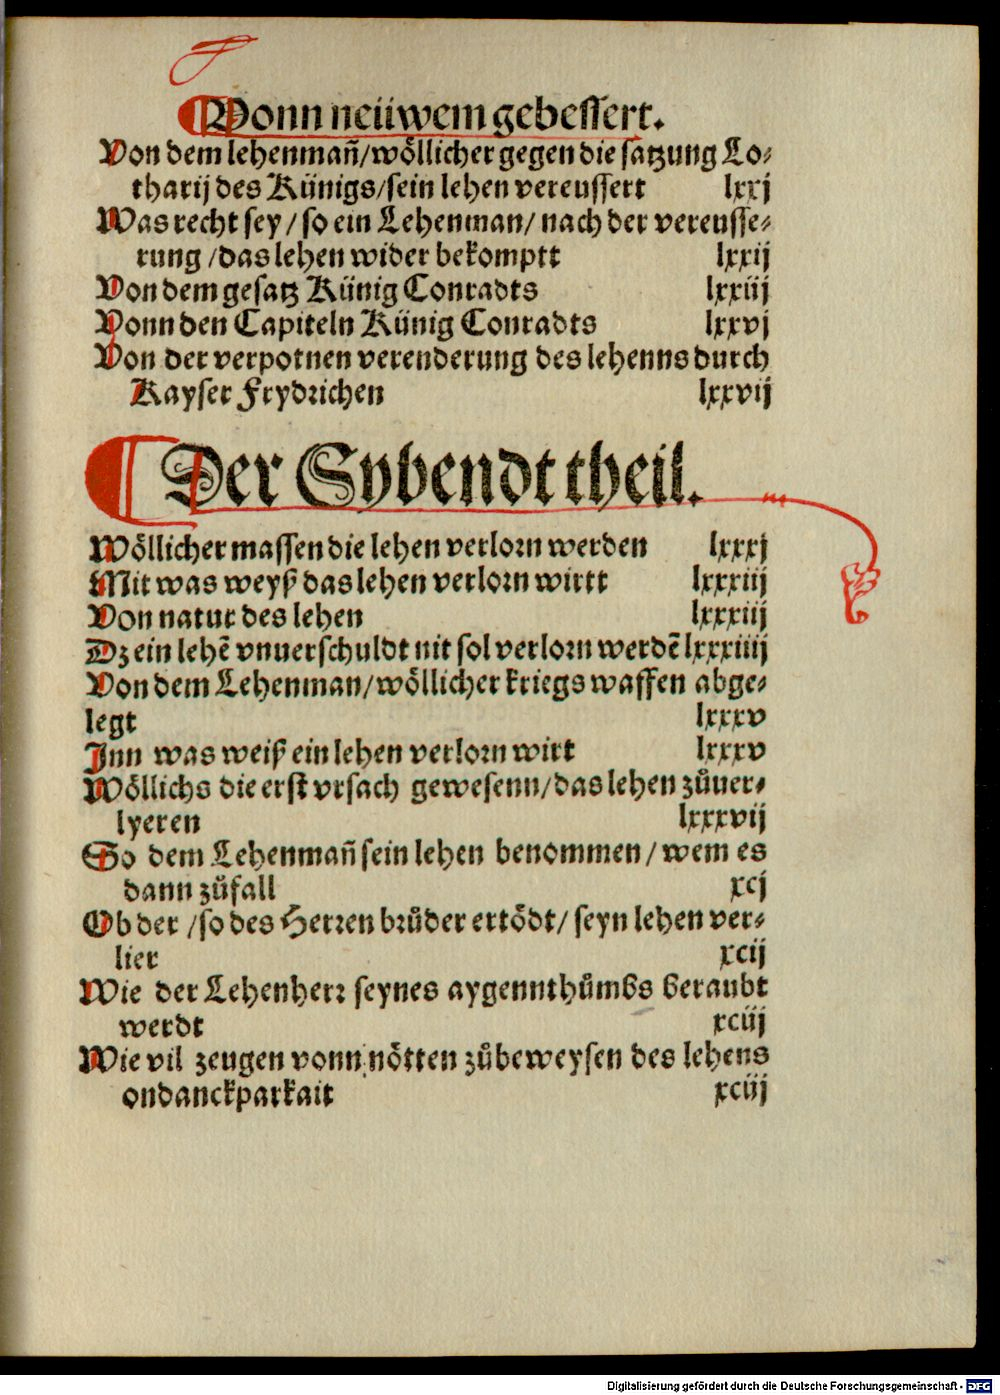 Vonn neüwem gebessert.
Von dem lehenmañ/wöllicher gegen die satzung Lo-
tharij des Künigs/sein lehen vereussert lxxj
Was recht sey/so ein Lehenman/nach der vereusse-
rung/das lehen wider bekomptt lxxij
Von dem gesatz Künig Conradts lxxiij
Vonn den Capiteln Künig Conradts lxxvj
Von der verpotnen verenderung des lehenns durch
Kayser Frydrichen lxxvij
Der Sybendt theil.
Wöllicher massen die lehen verlorn werden lxxxj
Mit was weyß das lehen verlorn wirtt lxxxiij
Von natur des lehen lxxxiij
Dz ein lehē vnuerschuldt nit sol verlorn werdē lxxxiiij
Von dem Lehenman/wöllicher kriegs waffen abge-
legt lxxxv
Jnn was weiß ein lehen verlorn wirt lxxxv
Wöllichs die erst vrsach gewesenn/das lehen zůuer-
lyeren lxxxvij
So dem Lehenmañ sein lehen benommen/wem es
dann zůfall xcj
Ob der/so des Herren brůder ertödt/seyn lehen ver-
lier xcij
Wie der Lehenherr seynes aygennthůmbs beraubt
werdt xciij
Wie vil zeugen vonn nötten zůbeweysen des lehens
ondanckparkait xciij
Digitalisierung gefördert durch die Deutsche Forschungsgemeinschaft - DFG